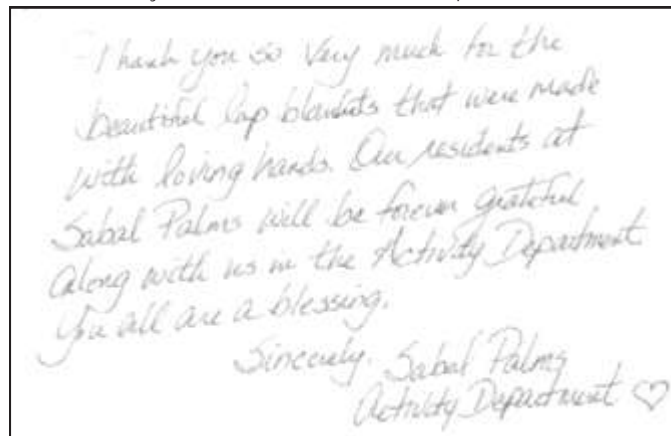 Thank you so very much for the
beautiful lap blankets that were made
with loving hands. Our residents at
Sabal Palms will be forever grateful
along with us in the Activity Department
You all are a blessing.
Sincerely, Sabal Palms
Activity Department ♡